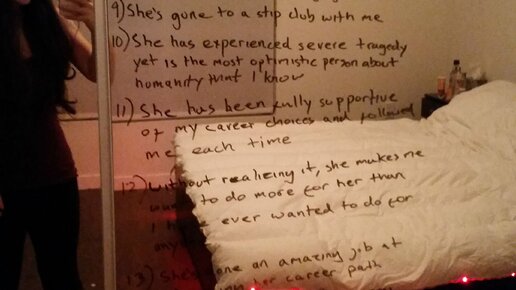 9) She's gone to a stip club with me
10) She has experienced severe tragedy
yet is the most optimistic person about
humanity that I know
11) She has been fully supportive
of my career choices and followed
me each time
12) Without realizing it, she makes me
to do more for her than
I ever wanted to do for
13) She's done an amazing job at
her career path